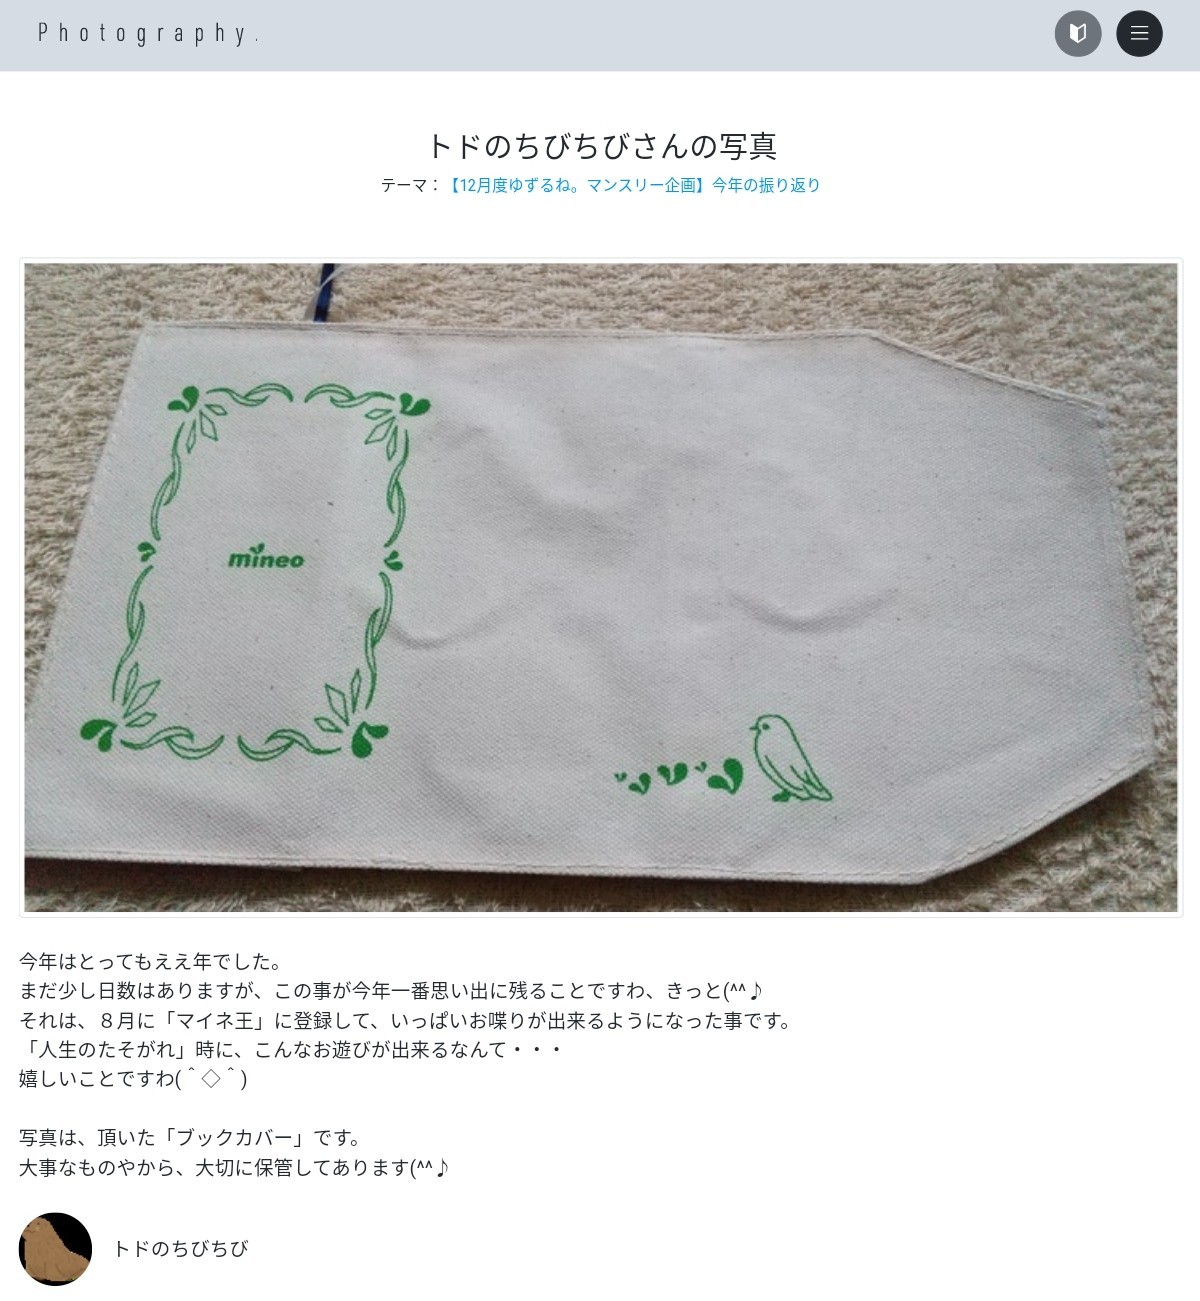 Photography.
トドのちびちびさんの写真
テーマ：【12月度ゆずるね。マンスリー企画】今年の振り返り
mineo
今年はとってもええ年でした。
まだ少し日数はありますが、この事が今年一番思い出に残ることですわ、きっと(^^♪
それは、８月に「マイネ王」に登録して、いっぱいお喋りが出来るようになった事です。
「人生のたそがれ」時に、こんなお遊びが出来るなんて・・・
嬉しいことですわ(＾◇＾)
写真は、頂いた「ブックカバー」です。
大事なものやから、大切に保管してあります(^^♪
トドのちびちび